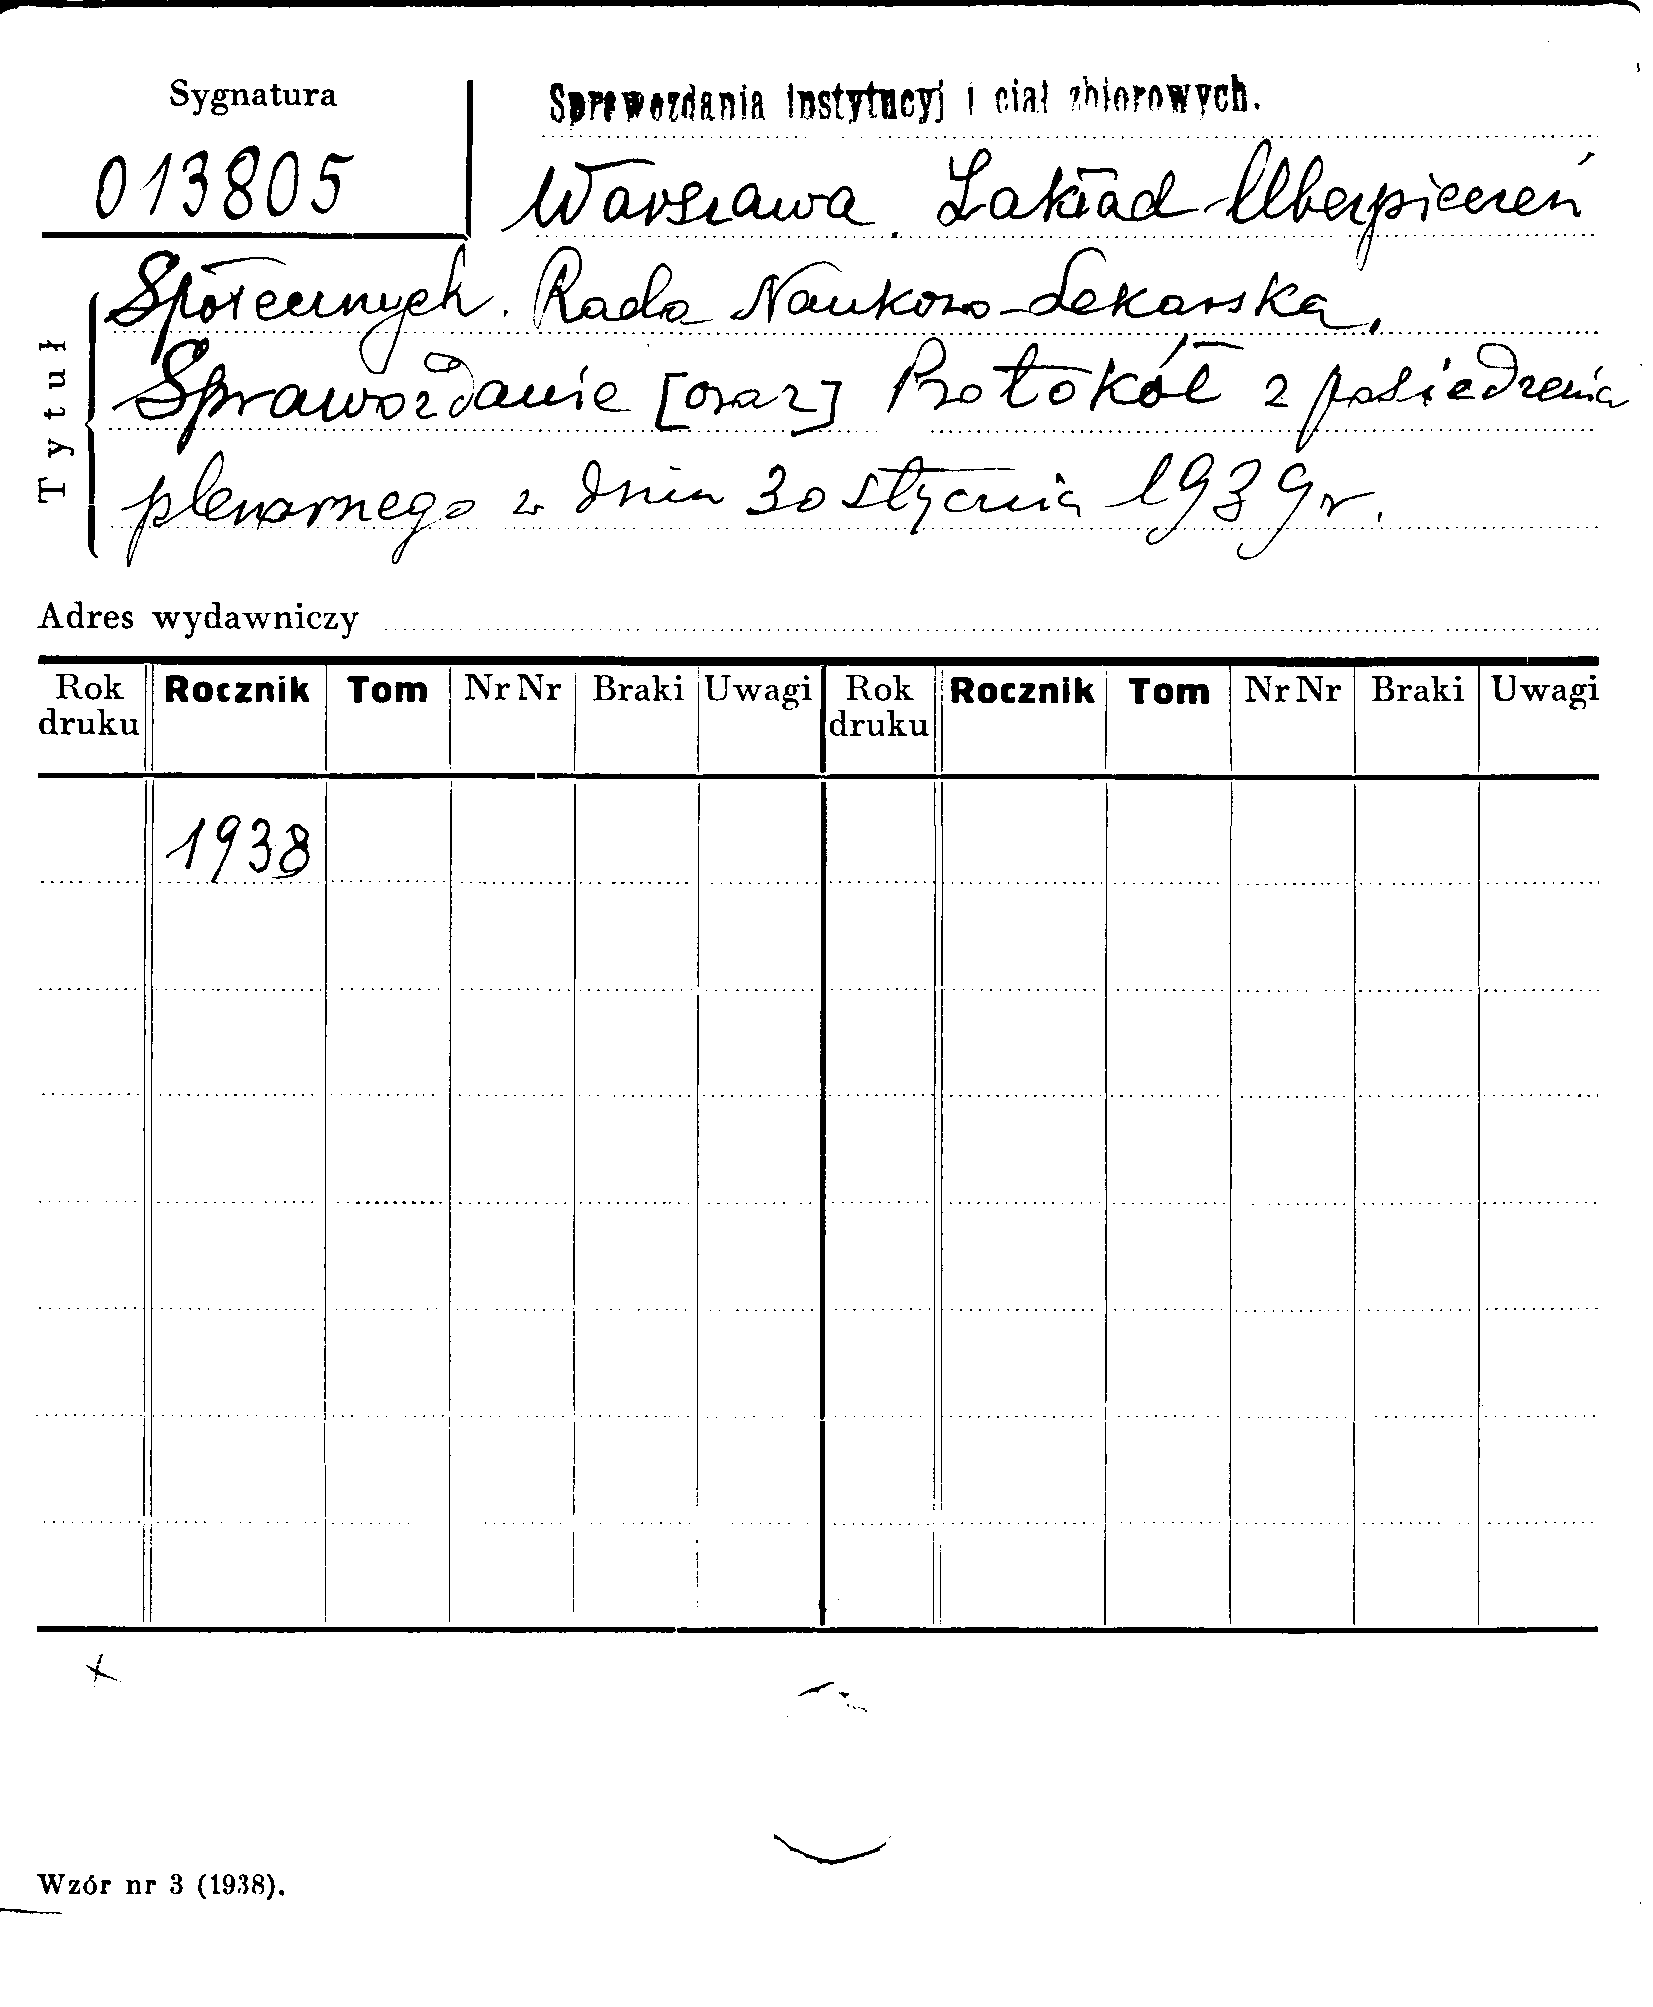 Sygnatura
Sprawozdania instytucyj i ciał zbiorowych.
013805
Warszawa. Zakład Ubezpieczeń
Społecznych. Rada Naukowo-Lekarska.
Sprawozdanie [oraz] Protokół z posiedzenia
plenarnego w dniu 30 stycznia 1939 r.
Tytuł
Adres wydawniczy
Rok druku Rocznik Tom Nr Nr Braki Uwagi Rok druku Rocznik Tom Nr Nr Braki Uwagi
1938
Wzór nr 3 (1938).